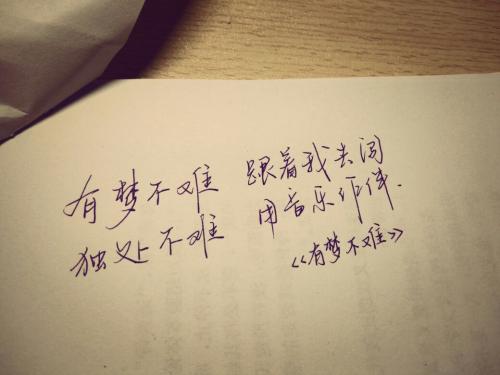 有梦不难 跟着我去闯
独处不难 用音乐作伴.
《有梦不难》